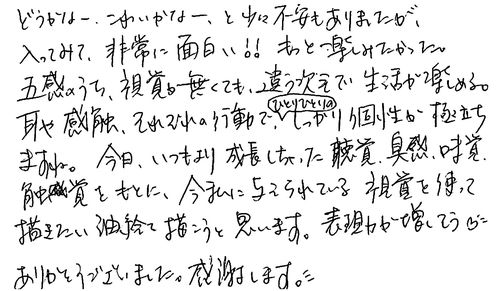 どうかなー、こわいかなー、と少々不安もありましたが、
入ってみて、非常に面白い!! もっと楽しみたかった。
五感のうち、視覚が無くても、違う次元で生活が楽しめる。
耳や感触、それぞれの行動で、ひとりひとりの しっかり個性が極立ち
ますね。今日、いつもより成長しちゃった聴覚、臭感、味覚、
触覚をもとに、今まいに与えられている視覚を使って
描きたい油絵を描こうと思います。表現力が増してう
ありがとうございました。感謝します。